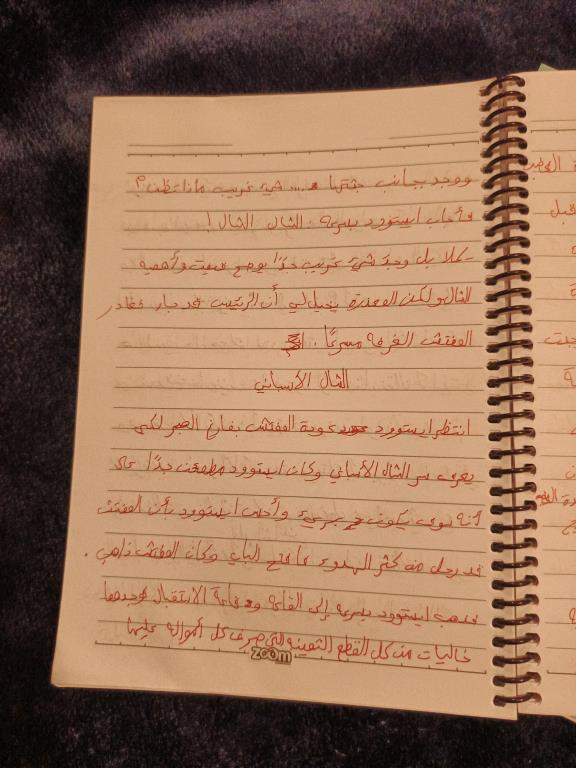 ووجد بجانب جثتها .... شيء غريب ماذا تظن؟
فأجاب ايستوود بسرعة : الشال الشال !
- كلا بل وجد شيء غريب جدًا يوضح
الشال ولكن المعذرة يخيل لي أن الرئيس قد فغادر
المفتش الغرفة مسرعًا .
الشال الأسباني
انتظر ايستوود عودة المفتش بفارغ الصبر لكي
يعرف سر الشال الأسباني وكان ايستوود جدًا
أنه سوف يكون بريء وأحس ايستوود بأن المفتش
قد رحل من كثر الهدوء فتح الباب وكان المفتش ذاهب .
فذهب ايستوود بسرعه إلى القاعه وقاعة الاستقبال فوجدهما
خاليات من كل القطع الثمينه التي صرف كل أمواله عليها
zoom
قبل